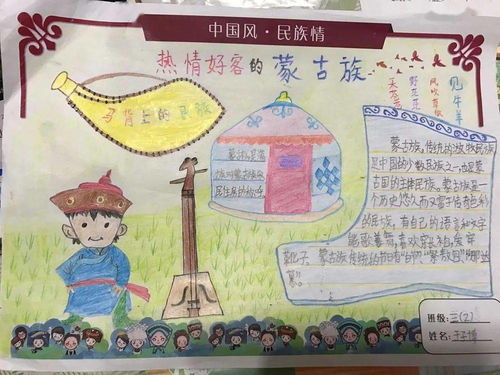 中国风·民族情
热情好客的蒙古族
马背上的民族
见牛羊
风吹草低
野茫茫
天苍苍
蒙古包是满
族对蒙古族牧
民住房的称呼
蒙古族，传统的游牧民族，
是中国的少数民族之一，也是蒙
古国的主体民族。蒙古族是一
个历史悠久而又富于传奇色彩
的民族，有自己的语言和文字
能歌善舞，喜欢穿长袍，皮革
靴子。蒙古族传统的节日有“白节”“祭敖包”“那达
慕”。
班级：三(2)
姓名：